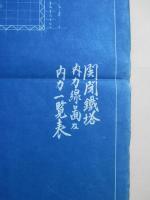 関門鐵塔
内力線畫及
内力一覧表